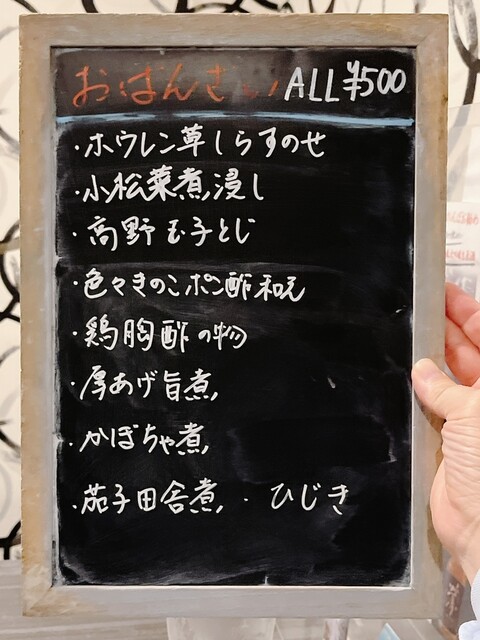 おばんさい ALL ¥500
・ホウレン草しらすのせ
・小松菜煮浸し
・高野玉子とじ
・色々きのこポン酢和え
・鶏胸酢の物
・厚あげ旨煮
・かぼちゃ煮
・茄子田舎煮 ・ひじき